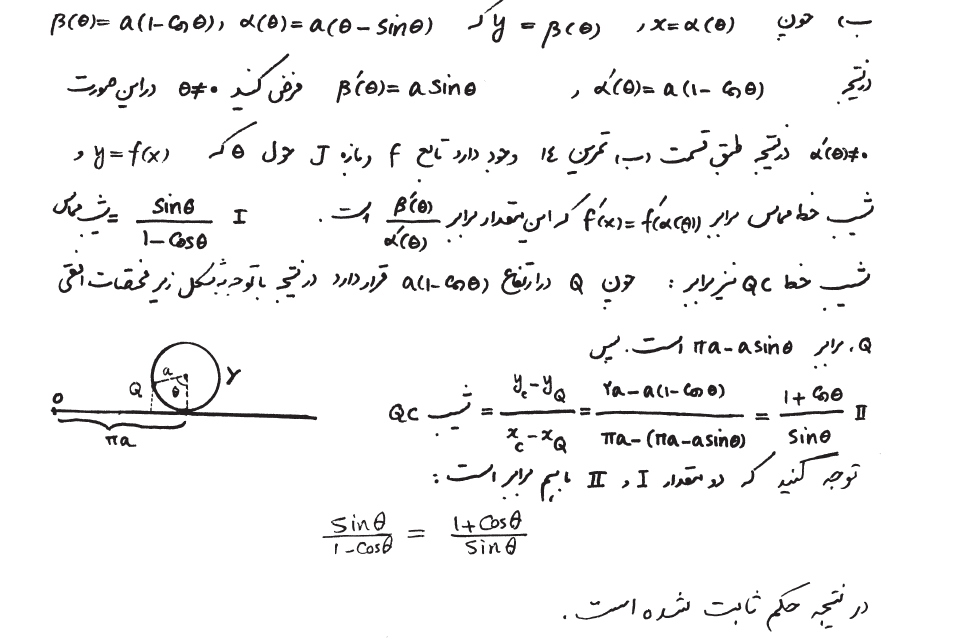 ب) چون x = α(θ) و y = β(θ) که α(θ) = a(θ - sinθ) و β(θ) = a(1 - Cosθ)
درنتیجه α′(θ) = a(1 - Cosθ) و β′(θ) = a sinθ فرض کنید θ≠۰ دراین صورت
α′(θ)≠۰ درنتیجه طبق قسمت (ب) تمرین ١٤ وجود دارد تابع f وبازه J حول θ که y = f(x) و
شیب خط مماس برابر f′(x) = f′(α(θ)) که این مقدار برابر β′(θ)/α′(θ) است. I sinθ/(1 - Cosθ) = شیب مماس
شیب خط QC نیز برابر: چون Q در ارتفاع a(1 - Cosθ) قرار دارد درنتیجه باتوجه به شکل زیر مختصات افقی
Q، برابر πa - a sinθ است. پس
شیب QC = (y_c - y_Q)/(x_c - x_Q) = (٢a - a(1 - Cosθ))/(πa - (πa - a sinθ)) = (1 + Cosθ)/sinθ II
O Q a θ γ
πa
توجه کنید که دو مقدار I و II باهم برابر است:
sinθ/(1 - Cosθ) = (1 + Cosθ)/sinθ
در نتیجه حکم ثابت شده است.